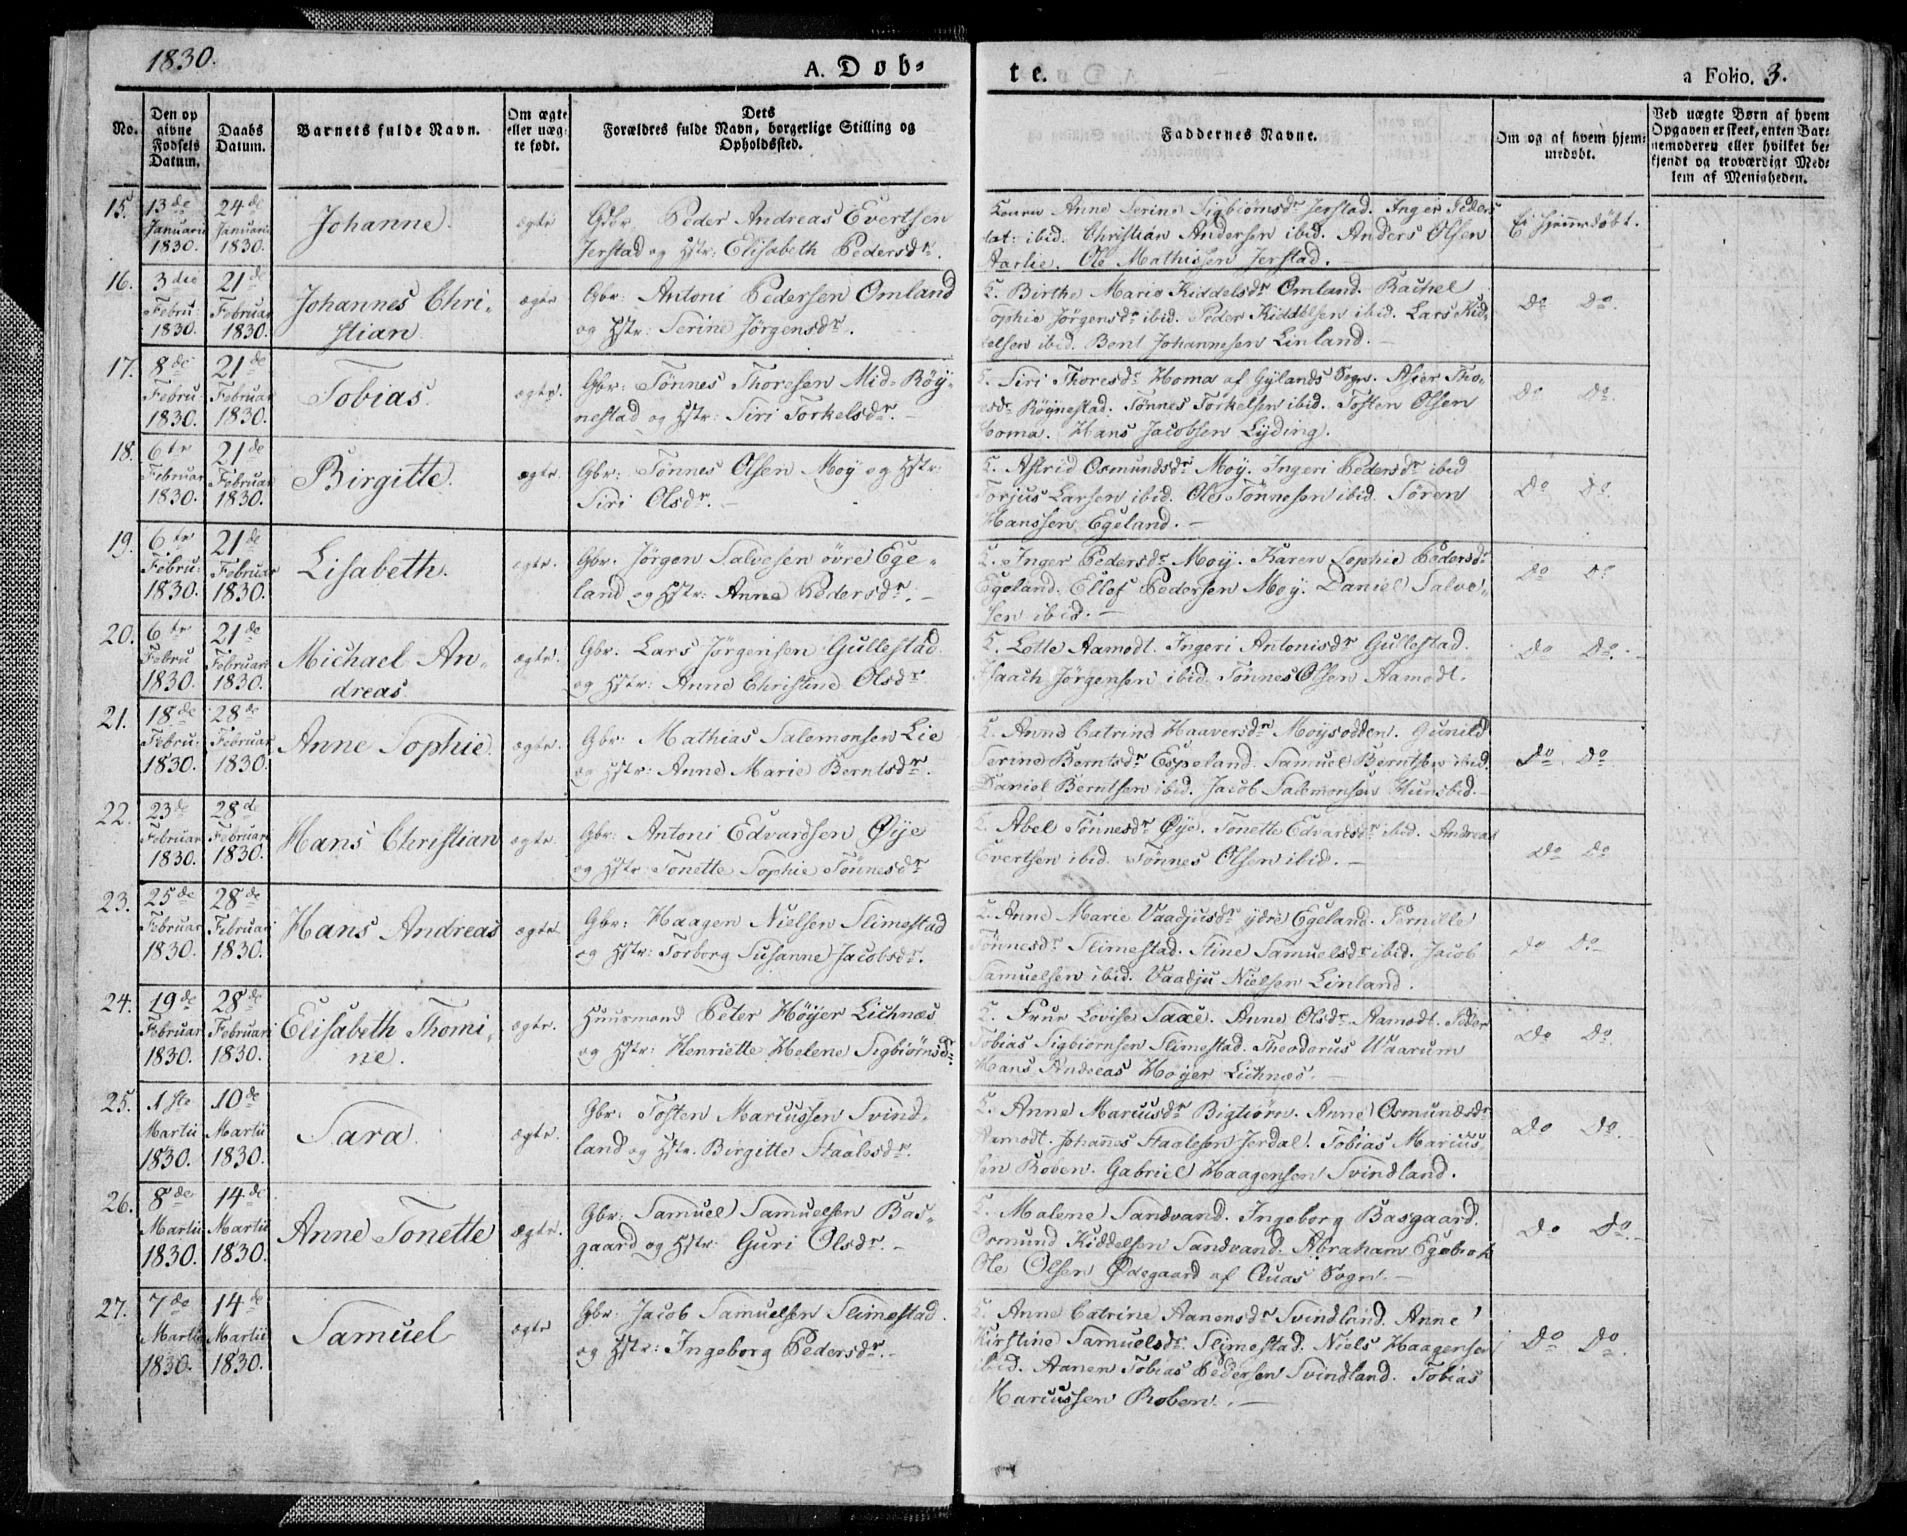 1830.
A. Dob-
te.
a Folio. 3.
No.
Den op
givne
Fødsels
Datum.
Daabs
Datum.
Barnets fulde Navn.
Om ægte
eller uæg-
te født.
Dets
Forældres fulde Navn, borgerlige Stilling og
Opholdssted.
Faddernes Navne.
Om og af hvem hjem-
medøbt.
Ved uægte Børn af hvem
Opgaven er skeet, enten Bar-
nemoderen eller hvilket be-
kjendt og troværdigt Med-
lem af Menigheden.
15.
13de
Januarii
1830.
24de
Januarii
1830.
Johanne.
ægte
Gbr. Peder Andreas Evertsen
Jerstad og Hstr: Elisabeth Pedersdr.
Anne Serine Sigbiørnsdr Jerstad. Inger Peders
dat: ibid. Christian Andersen ibid. Anders Olsen
Aarlie. Ole Mathissen Jerstad.
Ei hjemmedøbt.
16.
3die
Febru:
1830.
21de
Februar
1830.
Johannes Chri-
stian.
ægte
Gbr: Antoni Pedersen Omland
og Hstr: Serine Jørgensdr.
K. Birthe Marie Kiddelsdr Omland. Rachel
Sophie Jørgensdr ibid. Peder Kiddelsen ibid. Lars Kid-
delsen ibid. Bent Johannesen Linland.
Do Do.
17.
8de
Febru
1830.
21de
Februar
1830.
Tobias.
ægte.
Gbr: Tønnes Thoresen Mid-Røy-
nestad og Hstr: Siri Torkelsdr.
K. Siri Thoresdr Homa af Gylands Sogn. Asier Tho-
resdr Røynestad. Tønnes Torkelsen ibid. Tosten Olsen
Homa. Hans Jacobsen Lyding.
Do Do.
18.
6te
Februar
1830.
21de
Februar
1830.
Birgitte.
ægte.
Gbr: Tønnes Olsen Moy og Hstr:
Siri Olsdr.
K. Astrid Osmundsdr Moy. Ingeri Pedersdr ibid
Torjus Larsen ibid. Ole Tønnesen ibid. Sören
Hanssen Egeland.
Do Do.
19.
6te
Febru.
1830.
21de
Februar
1830.
Lisabeth.
ægte.
Gbr. Jörgen Salvesen övre Ege-
land og Hstr: Anne Pedersdr.
K. Inger Pedersdr Moy. Karen Sophie Pedersdr
Egeland. Ellef Pedersen Moy. Daniel Salve-
sen ibid.
Do Do
20.
6te
Febru
1830.
21de
Februari
1830.
Michael An-
dreas
ægte.
Gbr. Lars Jørgensen Gullestad
og Hstr: Anne Christine Olsdr
K. Lotte Aamodt. Ingeri Antonisdr Gullestad.
Isaach Jørgensen ibid. Tønnes Olsen Aamodt.
Do Do.
21.
18de
Febru:
1830.
28de
Februar
1830.
Anne Sophie.
ægte.
Gbr: Mathias Salomonsen Lie
og Hstr: Anne Marie Berntsdr.
K. Anne Catrine Haaversdr Moysodden. Gunild
Serine Berntsdr Espeland. Samuel Berntsen ibid.
Daniel Berntsen ibid. Jacob Salomonsen Hunsbed.
Do. Do.
22.
23de
Februar
1830.
28de
Februari
1830.
Hans Christian
ægte.
Gbr: Antoni Edvardsen Øye
og Hstr: Tonette Sophie Tønnesdr
K. Abel Tønnesdr Øye. Tonette Edvardsdr ibid. Andreas
Evertsen ibid. Tønnes Olsen ibid.
Do Do
23.
25de
Februar
1830.
28de
Februari
1830.
Hans Andreas
ægte.
Gbr: Haagen Nielsen Slimestad
og Hstr: Torborg Susanne Jacobsdr.
K. Anne Marie Vaadjusdr ydre Egeland. Pernille
Tønnesdr Slimestad. Stine Samuelsdr ibid. Jacob
Samuelsen ibid. Vaadju Nielsen Linland.
Do Do
24.
19de
Februar
1830.
28de
Februari
1830.
Elisabeth Thomi-
ne.
ægte.
Huusmand Peter Höyer Lichnæs
og Hstr: Henriette Helene Sigbiørnsdr
K. Frue Lovise Saxe. Anne Olsdr Aamodt. Peder
Tobias Sigbiørnsen Slimestad. Theodorus Waarum
Hans Andreas Høyer Lichnæs.
Do Do.
25.
1ste
Martii
1830.
10de
Martii
1830.
Sara.
ægte.
Gbr: Tosten Marcussen Svind-
land og Hstr. Birgitte Staalesdr.
K. Anne Marcusdr Bigtiørn. Anne Osmundsdr
Aamodt. Johanes Staalesen Jerdal. Tobias Marcus-
sen Roben. Gabriel Haagensen Svindland.
Do Do.
26.
8de
Martii
1830.
14de
Martii
1830.
Anne Tonette
ægte.
Gbr: Samuel Samuelsen Bas-
gaard og Hstr: Guri Olsdr.
K. Malene Sandvand. Ingeborg Basgaard.
Osmund Kiddelsen Sandvand. Abraham Egebech
Ole Olsen Ødegaard af Qvas Sogn.
Do Do.
27.
7de
Martii
1830.
14de
Martii
1830.
Samuel
ægte
Gbr. Jacob Samuelsen Slimestad.
og Hstr: Ingeborg Pedersdr.
K. Anne Catrine Aanensdr Svindland. Anne
Kirstine Samuelsdr Slimestad. Niels Haagensen
ibid. Aanen Tobias Pedersen Svindland. Tobias
Marcussen Roben.
Do Do.